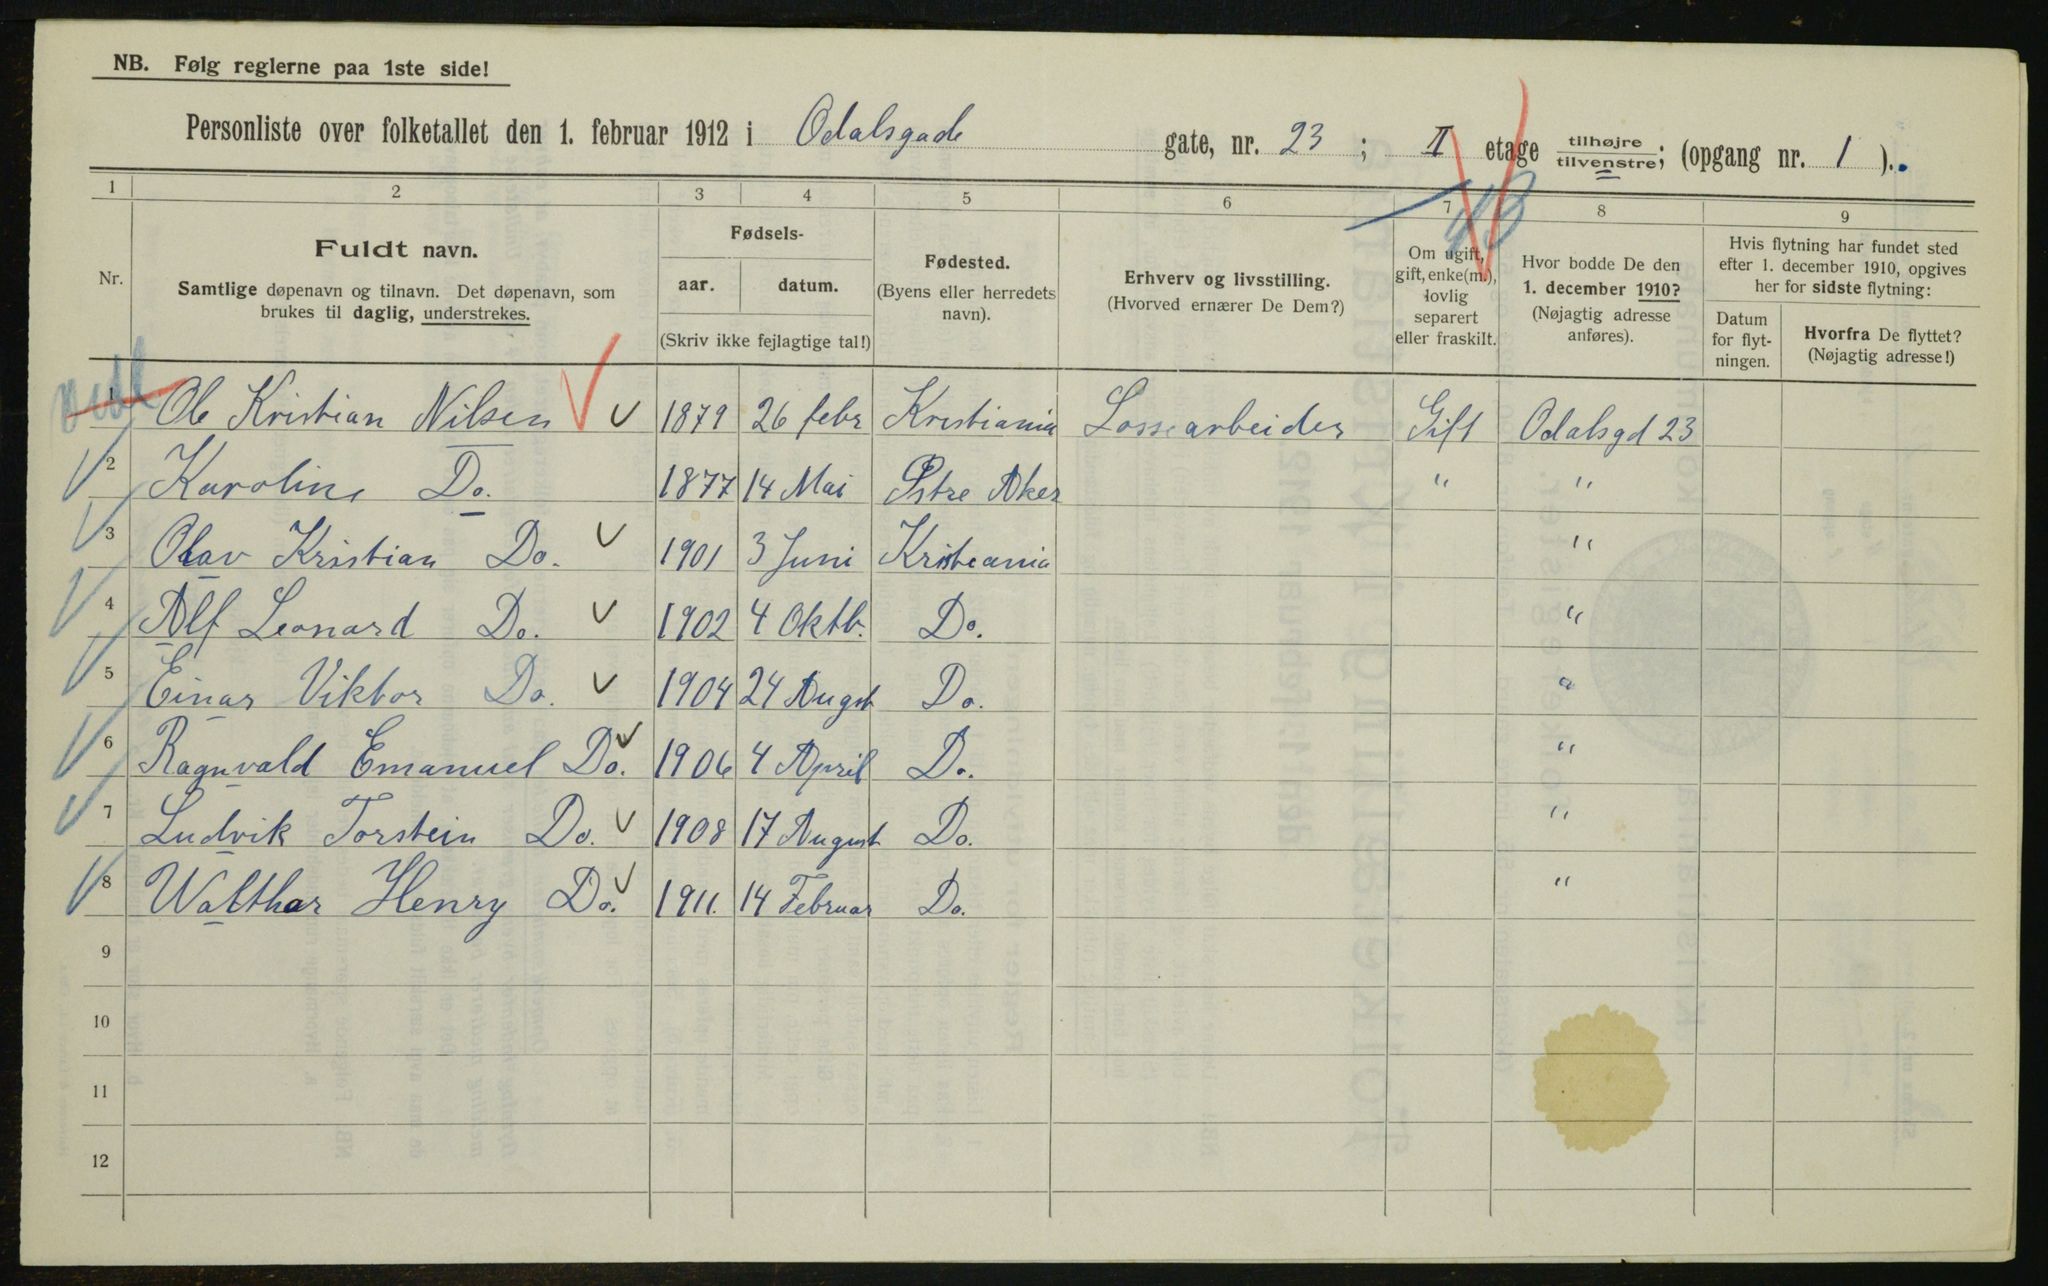 NB. Følg reglerne paa 1ste side!
Personliste over folketallet den 1. februar 1912 i Odalsgade gate, nr. 23 ; II etage tilhøjre/tilvenstre; (opgang nr. 1 ).
1 2 3 4 5 6 7 8 9
43
Nr.
Fuldt navn.
Samtlige døpenavn og tilnavn. Det døpenavn, som
brukes til daglig, understrekes.
Fødsels-
aar. datum.
(Skriv ikke fejlagtige tal!)
Fødested.
(Byens eller herredets
navn).
Erhverv og livsstilling.
(Hvorved ernærer De Dem?)
Om ugift,
gift, enke(m.),
lovlig
separert
eller fraskilt.
Hvor bodde De den
1. december 1910?
(Nøjagtig adresse
anføres).
Hvis flytning har fundet sted
efter 1. december 1910, opgives
her for sidste flytning:
Datum
for flyt-
ningen.
Hvorfra De flyttet?
(Nøjagtig adresse!)
1 Ole Kristian Nilsen 1879 26 febr Kristiania Lossearbeider Gift Odalsgd 23
2 Karoline Do. 1877 14 Mai Østre Aker " "
3 Olav Kristian Do. 1901 3 Juni Kristiania "
4 Alf Leonard Do. 1902 4 Oktb. Do. "
5 Einar Viktor Do. 1904 24 Augst Do. "
6 Ragnvald Emanuel Do. 1906 4 April Do. "
7 Ludvik Torstein Do. 1908 17 August Do. "
8 Walthar Henry Do. 1911. 14 Februar Do. "
9
10
11
12